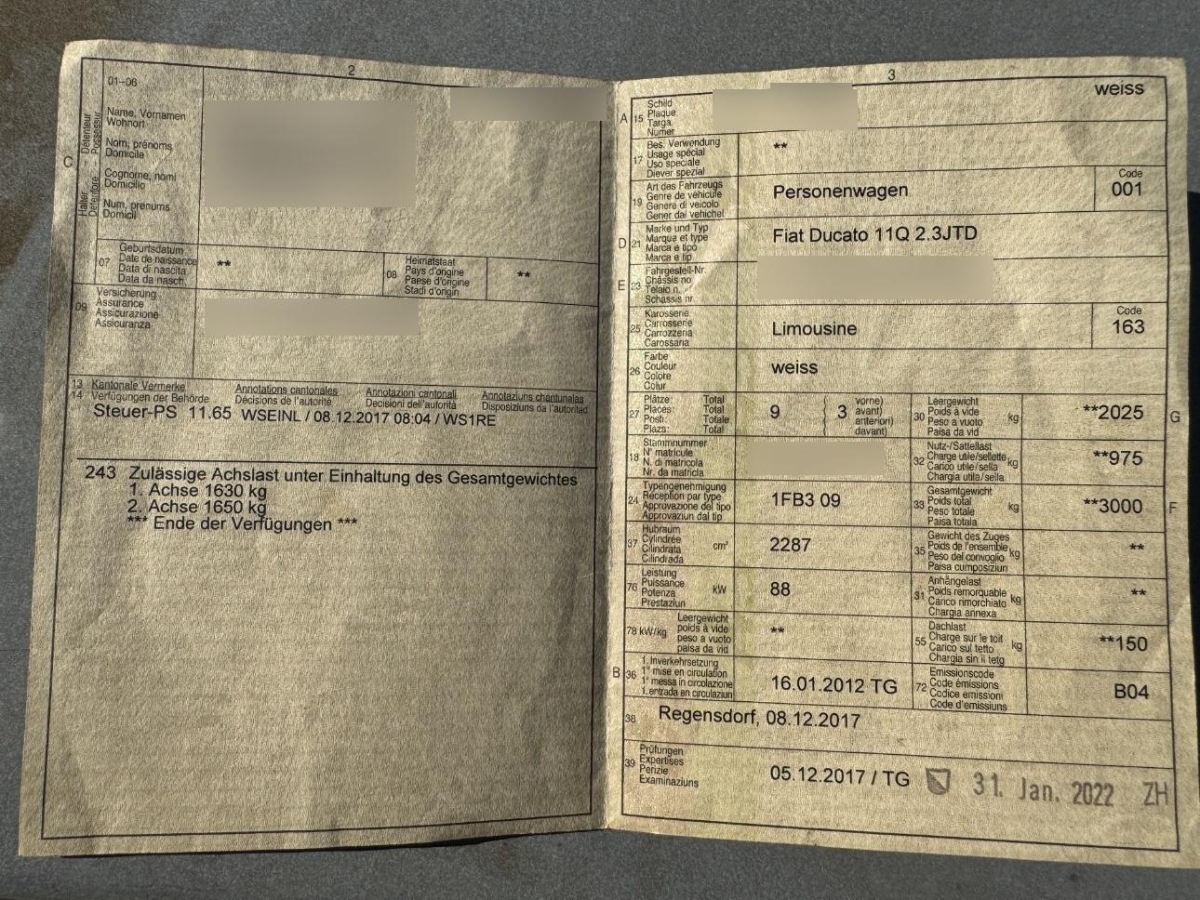 2
01–06
C
Halter Détenteur
Detentore Possessur
Name, Vornamen
Wohnort
Nom, prénoms
Domicile
Cognome, nomi
Domicilio
Num, prenums
Domicil
07
Geburtsdatum
Date de naissance
Data di nascita
Data da nasch.
**
08
Heimatstaat
Pays d'origine
Paese d'origine
Stadi d'origin
**
09
Versicherung
Assurance
Assicurazione
Assicuranza
13 Kantonale Vermerke Annotations cantonales Annotazioni cantonali Annotaziuns chantunalas
14 Verfügungen der Behörde Décisions de l'autorité Decisioni dell'autorità Disposiziuns da l'autoritad
Steuer-PS 11.65 WSEINL / 08.12.2017 08:04 / WS1RE
243 Zulässige Achslast unter Einhaltung des Gesamtgewichtes
1. Achse 1630 kg
2. Achse 1650 kg
*** Ende der Verfügungen ***
3
weiss
A 15
Schild
Plaque
Targa
Numer
17
Bes. Verwendung
Usage spécial
Uso speciale
Diever spezial
**
19
Art des Fahrzeugs
Genre de véhicule
Genere di veicolo
Gener dal vehichel
Personenwagen
Code
001
D 21
Marke und Typ
Marque et type
Marca e tipo
Marca e tip
Fiat Ducato 11Q 2.3JTD
E 23
Fahrgestell-Nr.
Châssis no
Telaio n.
Schassis nr.
25
Karosserie
Carrosserie
Carrozzeria
Carossaria
Limousine
Code
163
26
Farbe
Couleur
Colore
Colur
weiss
27
Plätze: Total
Places: Total
Posti: Totale
Plazs: Total
9
3
vorne)
avant)
anteriori)
davant)
30
Leergewicht
Poids à vide
Peso a vuoto
Paisa da vid
kg
**2025
G
18
Stammnummer
N° matricule
N. di matricola
Nr. da matricla
32
Nutz-/Sattellast
Charge utile/sellette
Carico utile/sella
Chargia utila/sella
kg
**975
24
Typengenehmigung
Réception par type
Approvazione del tipo
Approvaziun dal tip
1FB3 09
33
Gesamtgewicht
Poids total
Peso totale
Paisa totala
kg
**3000
F
37
Hubraum
Cylindrée
Cilindrata
Cilindrada
cm³
2287
35
Gewicht des Zuges
Poids de l'ensemble
Peso del convoglio
Paisa cumposiziun
kg
**
76
Leistung
Puissance
Potenza
Prestaziun
kW
88
31
Anhängelast
Poids remorquable
Carico rimorchiato
Chargia annexa
kg
**
78 kW/kg
Leergewicht
poids à vide
peso a vuoto
paisa da vid
**
55
Dachlast
Charge sur le toit
Carico sul tetto
Chargia sin il tetg
kg
**150
B 36
1. Inverkehrsetzung
1re mise en circulation
1a messa in circolazione
1. entrada en circulaziun
16.01.2012 TG
72
Emissionscode
Code émissions
Codice emissioni
Code d'emissiuns
B04
38
Regensdorf, 08.12.2017
39
Prüfungen
Expertises
Perizie
Examinaziuns
05.12.2017 / TG
31. Jan. 2022 ZH